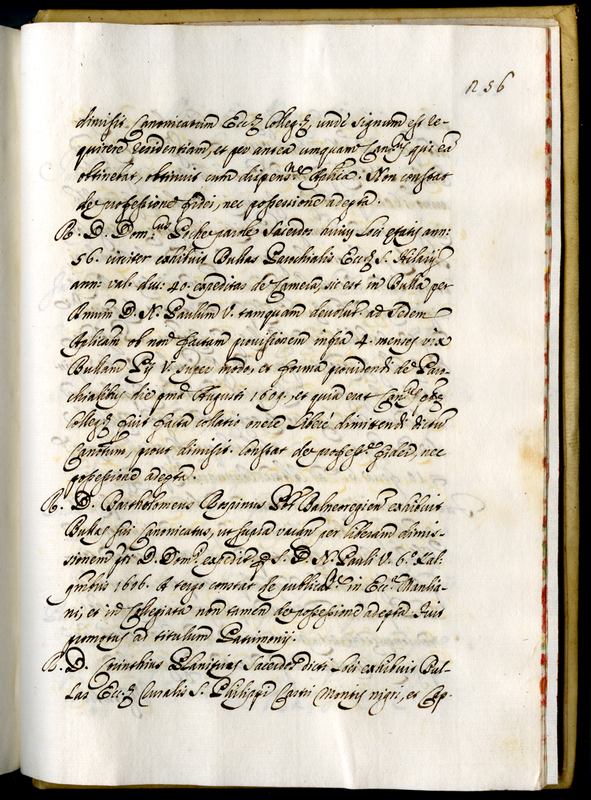 256
dimisit Canonicatum Eccæ Collegæ, unde signum est re-
quirere residentiam, et per antea unquam Canᶜᵘˢ qui ea
obtinebat, obtinuit cum dispensⁿᵉ Aplica. Non constat
de professione fidei, nec possessione adepta.
R. D. Domᶜᵘˢ sacerdos huius loci etatis ann:
56. circiter exhibuit Bullas Parochialis Eccæ S. Hilarij
ann: val: duc: 40. expeditas de Camera, sic est in Bulla per
D. N. Paulum V. tamquam devolut. ad Sedem
Aplicam ob non factam provisionem infra 4. menses vix
Bullam Pij V. super modo, et forma providendi de Paro-
chialibus die pma Augusti 1609. et quia erat Canᶜᵘˢ
Collegæ fuit facta collatio onere libere dimittendi dictū
Canotum, prout dimisit. Constat de professᵉ fidei, nec
possessione adepta.
R. D. Bartholomeus Balneoregien exhibuit
Bullas sui Canonicatus, ut supra vacan per liberam dimis-
sionem D. Domᶜⁱ expedit S. D. N. Pauli V. 6.° Kal.
1606. A tergo constat de publicatⁿᵉ in Ecca
et in Collegiata non tamen de possessione adepta. Fuit
promotus ad titulum Patrimonij.
R. D. Planitius Sacerdos dicti loci exhibuit Bul-
las Eccæ Curalis S. Philippi Castri Montis nigri, et Cap-